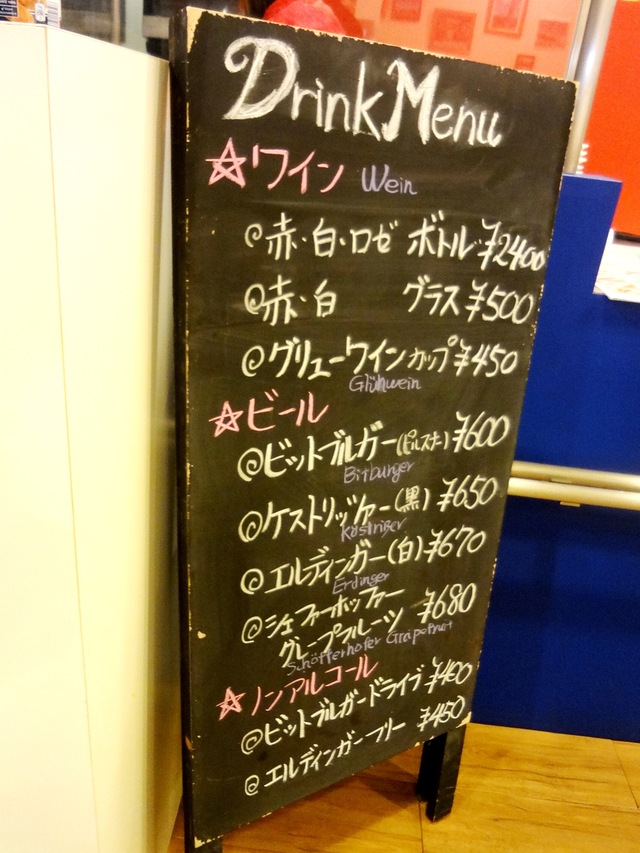 Drink Menu
☆ワイン Wein
@赤・白・ロゼ ボトル ¥2400
@赤・白 グラス ¥500
@グリューワイン カップ ¥450
Glühwein
☆ビール
@ビットブルガー(ピルスナー) ¥600
Bitburger
@ケストリッツァー(黒) ¥650
Köstriger
@エルディンガー(白) ¥670
Erdinger
@シェファーホッファー
グレープフルーツ ¥680
Schöfferhofer Grapefruit
☆ノンアルコール
@ビットブルガードライブ ¥400
@エルディンガーフリー ¥450